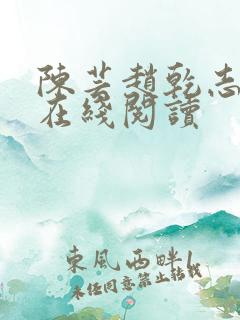 陳芸趙乾志
在綫閱讀
東風西畔1
未經同意禁止轉載